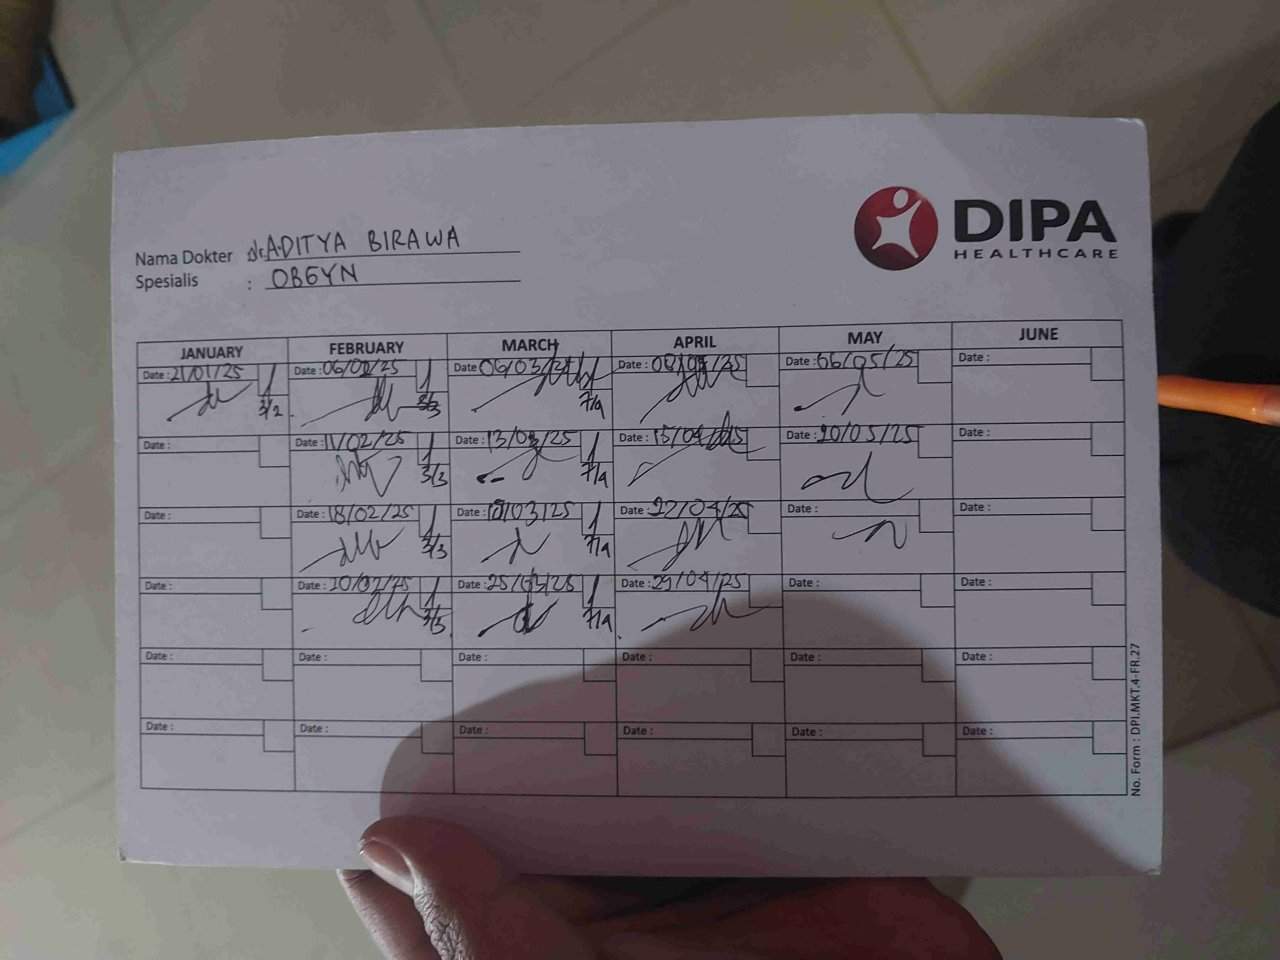 DIPA
HEALTHCARE
Nama Dokter dr. ADITYA BIRAWA
Spesialis : OBGYN
JANUARY FEBRUARY MARCH APRIL MAY JUNE
Date : 21/01/25 Date : 06/02/25 Date : 06/03/25 Date : Date : 06/05/25 Date :
3/2 3/3 7/9
Date : Date : 11/02/25 Date : 13/03/25 Date : 15/04/25 Date : 20/05/25 Date :
3/3 7/9
Date : Date : 18/02/25 Date : /03/25 Date : 22/04/25 Date : Date :
3/3 7/9
Date : Date : 20/02/25 Date : 25/03/25 Date : 29/04/25 Date : Date :
3/3 7/9
Date : Date : Date : Date : Date : Date :
Date : Date : Date : Date : Date : Date :
No. Form : DPI.MKT.4-FR.27